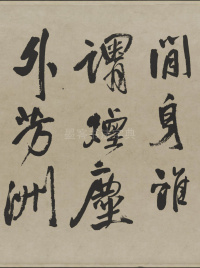 閒身誰
謂煙塵
外芳洲